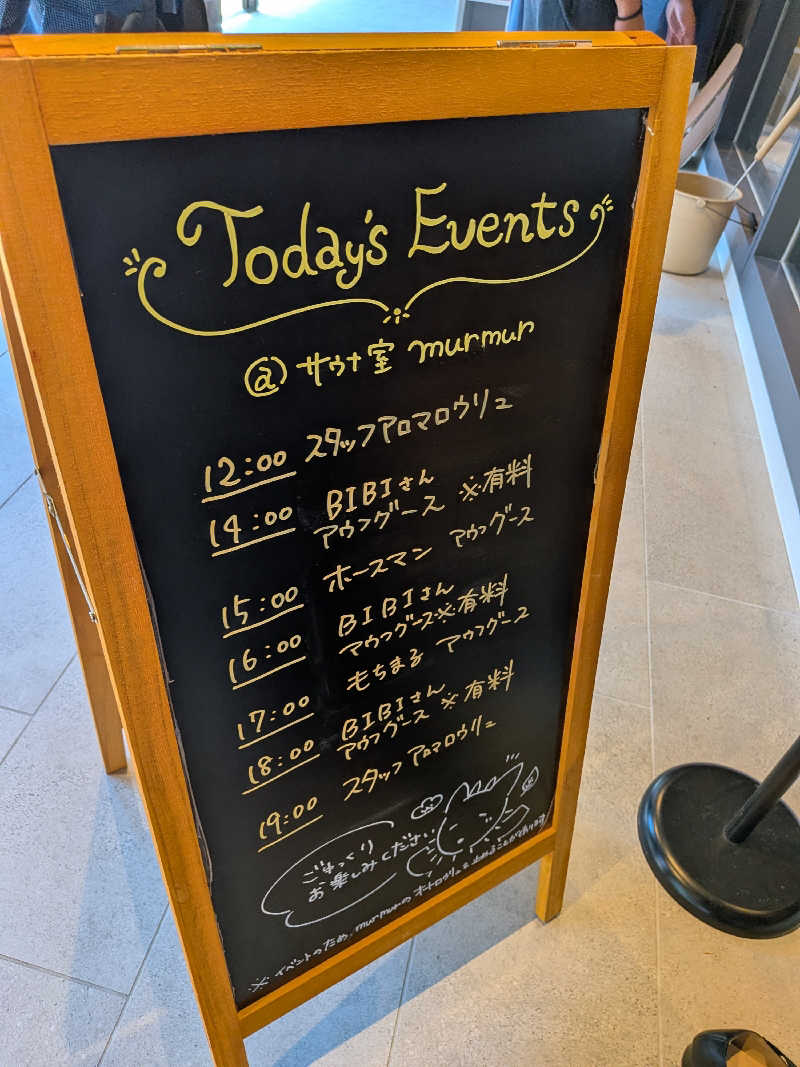 Today's Events
@ サウナ室 murmur
12:00 スタッフアロマロウリュ
14:00 BIBIさん
アウフグース ※有料
15:00 ホースマン アウフグース
16:00 BIBIさん
アウフグース※有料
17:00 もちまる アウフグース
18:00 BIBIさん
アウフグース ※有料
19:00 スタッフ アロマロウリュ
ごゆっくり
お楽しみください
※ イベントのため、murmurの オートロウリュを止めることがあります